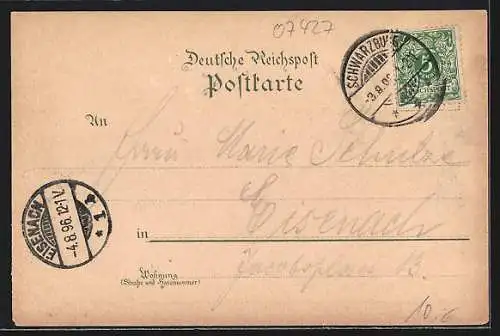 07427
Deutsche Reichspost
Postkarte
SCHWARZBURG
-3.8.96
5
An
Frau Marie Schulze
EISENACH
-4.8.96.12-1V.
* 1 *
in Eisenach
Wohnung
(Straße und Hausnummer)
10.-